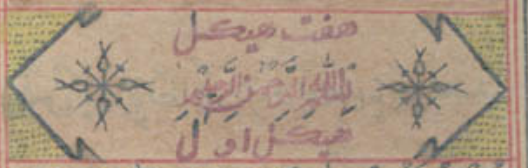 هفت هيكل
بِسْمِ اللهِ الرَّحْمٰنِ الرَّحِيْمِ
هيكل اول